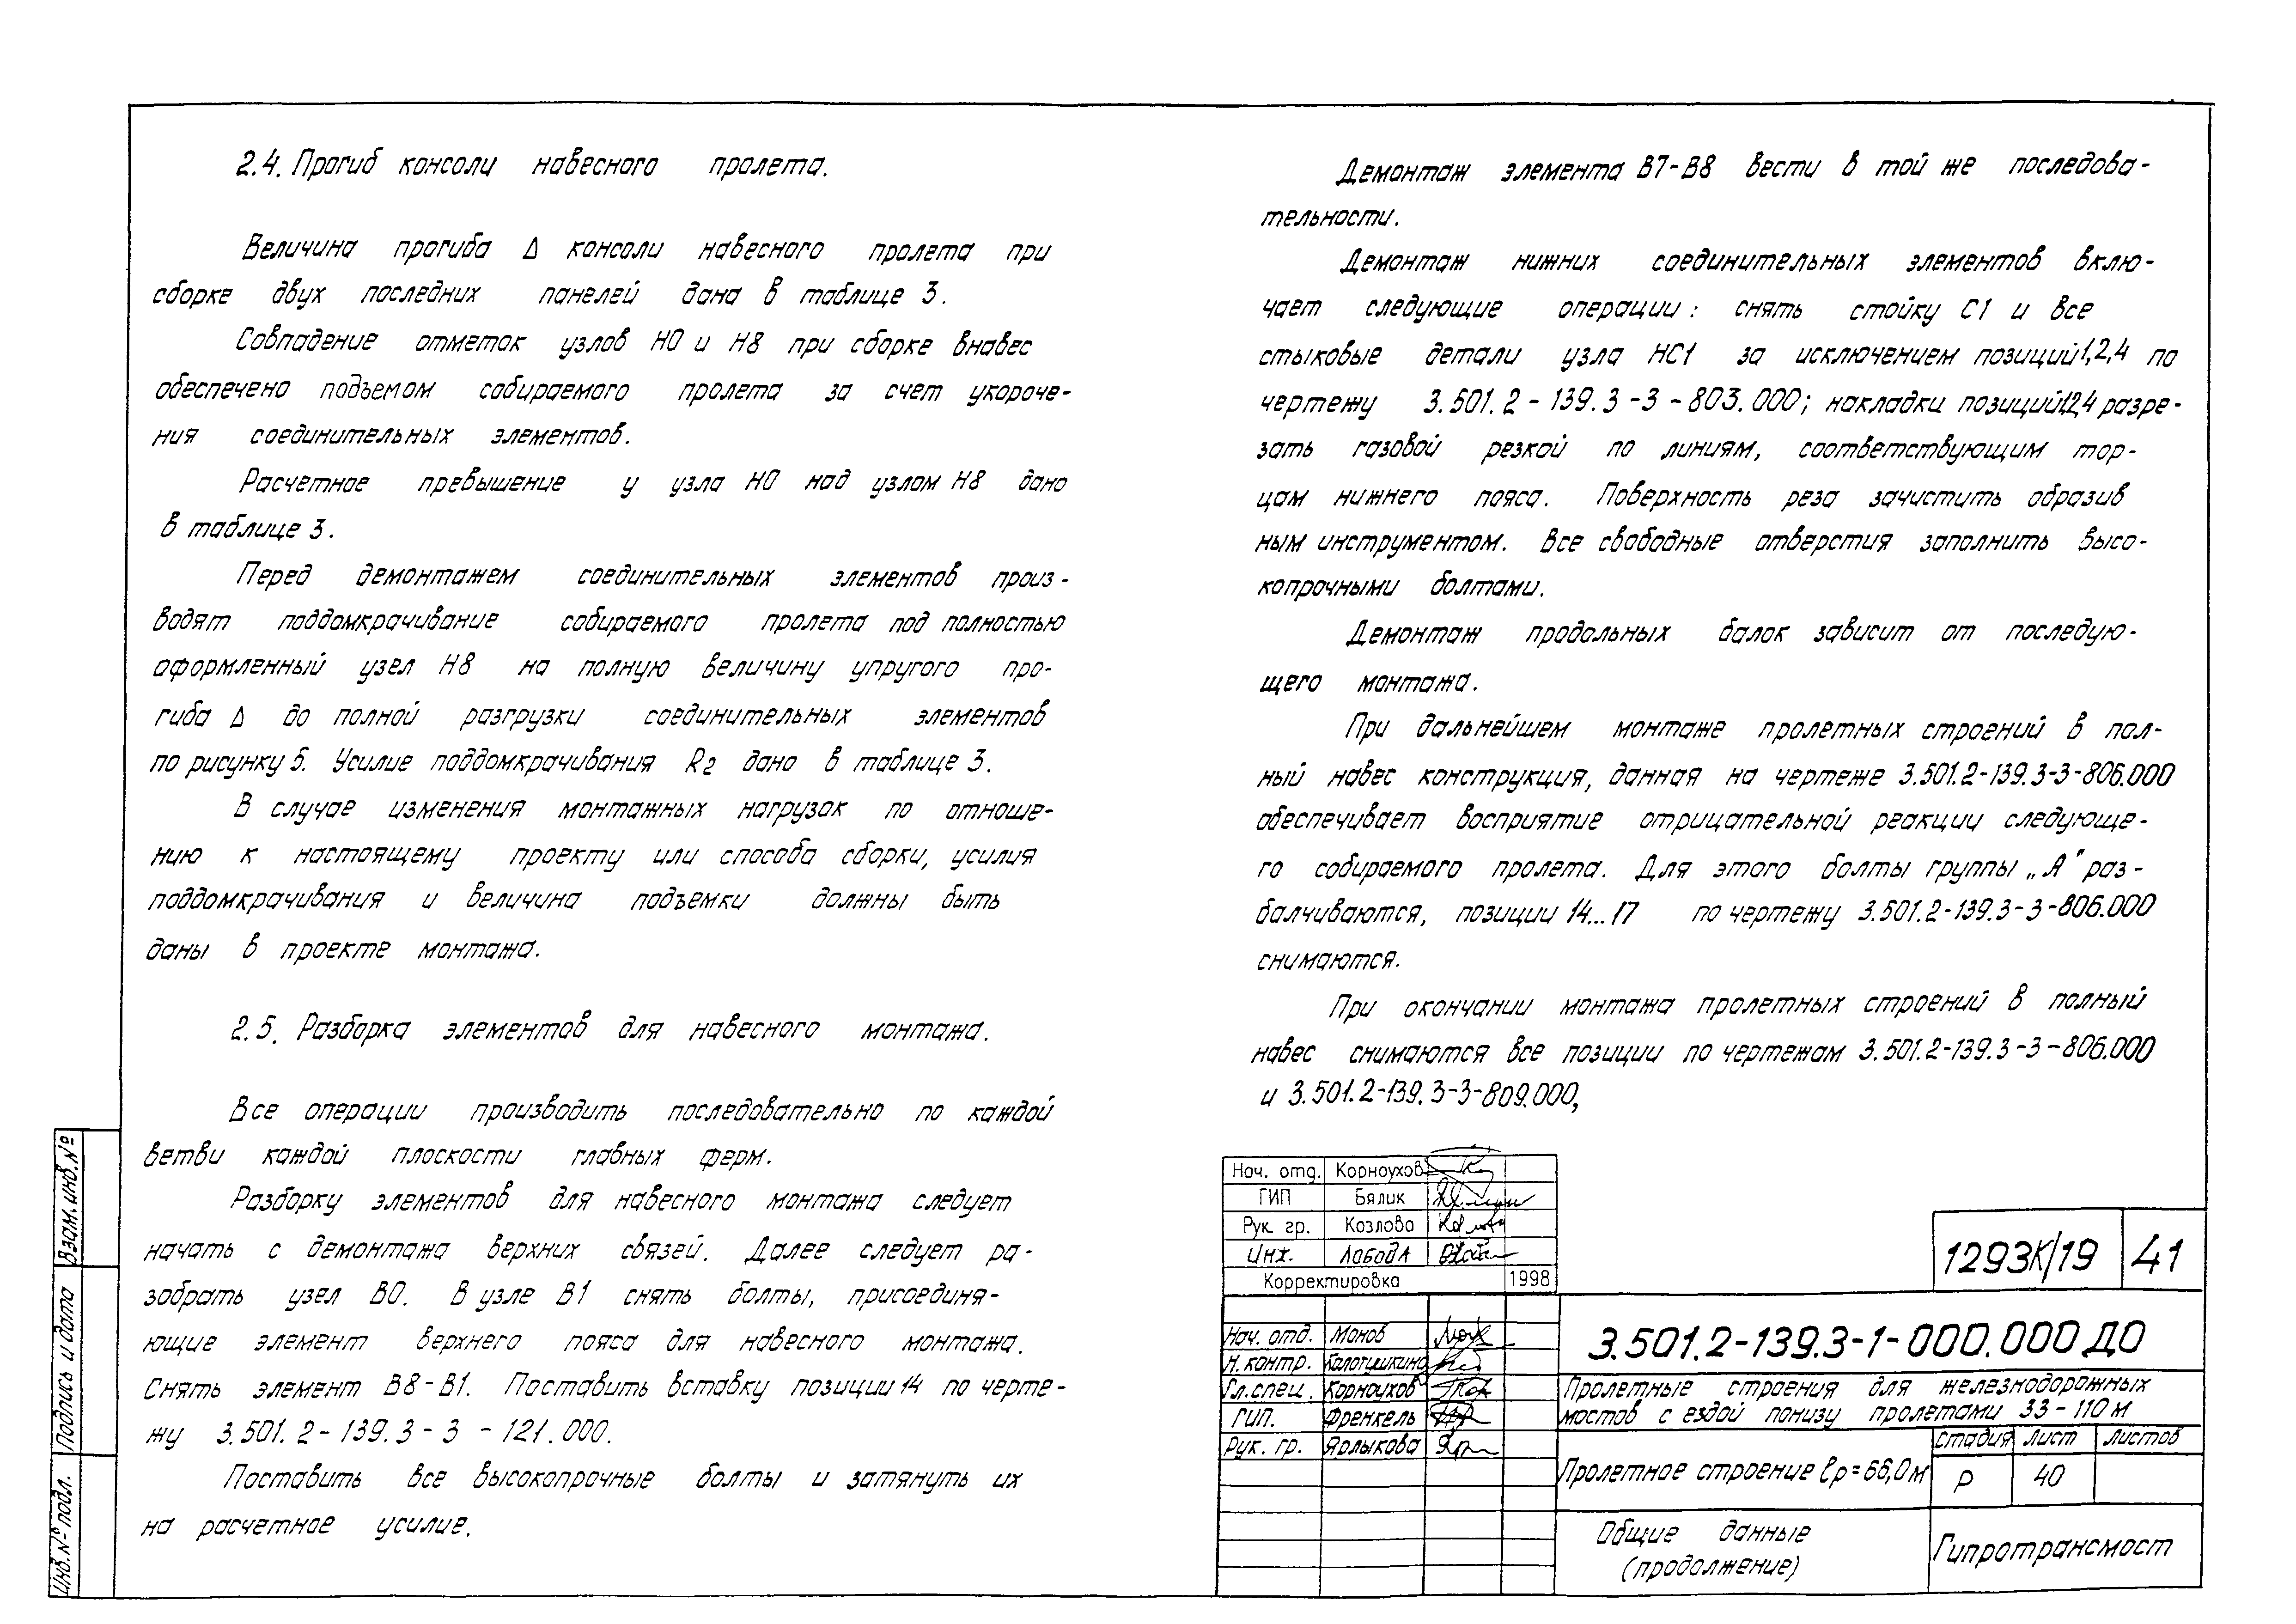 2.4. Прогиб консоли навесного пролета.
Величина прогиба Δ консоли навесного пролета при
сборке двух последних панелей дана в таблице 3.
Совпадение отметок узлов Н0 и Н8 при сборке внавес
обеспечено подъемом собираемого пролета за счет укороче-
ния соединительных элементов.
Расчетное превышение у узла Н0 над узлом Н8 дано
в таблице 3.
Перед демонтажем соединительных элементов произ-
водят поддомкрачивание собираемого пролета под полностью
оформленный узел Н8 на полную величину упругого про-
гиба Δ до полной разгрузки соединительных элементов
по рисунку 5. Усилие поддомкрачивания R2 дано в таблице 3.
В случае изменения монтажных нагрузок по отноше-
нию к настоящему проекту или способа сборки, усилия
поддомкрачивания и величина подъемки должны быть
даны в проекте монтажа.
2.5. Разборка элементов для навесного монтажа.
Все операции производить последовательно по каждой
ветви каждой плоскости главных ферм.
Разборку элементов для навесного монтажа следует
начать с демонтажа верхних связей. Далее следует ра-
зобрать узел В0. В узле В1 снять болты, присоединя-
ющие элемент верхнего пояса для навесного монтажа.
Снять элемент В8-В1. Поставить вставку позиции 14 по черте-
жу 3.501.2-139.3-3-121.000.
Поставить все высокопрочные болты и затянуть их
на расчетное усилие.
Демонтаж элемента В7-В8 вести в той же последова-
тельности.
Демонтаж нижних соединительных элементов вклю-
чает следующие операции: снять стойку С1 и все
стыковые детали узла НС1 за исключением позиций 1,2,4 по
чертежу 3.501.2-139.3-3-803.000; накладки позиций 1,2,4 разре-
зать газовой резкой по линиям, соответствующим тор-
цам нижнего пояса. Поверхность реза зачистить образив
ным инструментом. Все свободные отверстия заполнить высо-
копрочными болтами.
Демонтаж продольных балок зависит от последую-
щего монтажа.
При дальнейшем монтаже пролетных строений в пол-
ный навес конструкция, данная на чертеже 3.501.2-139.3-3-806.000
обеспечивает восприятие отрицательной реакции следующе-
го собираемого пролета. Для этого болты группы „А" раз-
балчиваются, позиции 14...17 по чертежу 3.501.2-139.3-3-806.000
снимаются.
При окончании монтажа пролетных строений в полный
навес снимаются все позиции по чертежам 3.501.2-139.3-3-806.000
и 3.501.2-139.3-3-809.000,
Нач. отд. Корноухов
ГИП Бялик
Рук. гр. Козлова
Инж. Лобода
Корректировка 1998
1293К/19 41
Нач. отд. Монов
Н. контр. Колотушкина
Гл. спец. Корноухов
ГИП. Френкель
Рук. гр. Ярлыкова
3.501.2-139.3-1-000.000 ДО
Пролетные строения для железнодорожных
мостов с ездой понизу пролетами 33-110 м
Пролетное строение lр=66,0 м
Стадия Лист Листов
Р 40
Общие данные
(продолжение)
Гипротрансмост
Взам. инв. №
Подпись и дата
Инв. № подл.